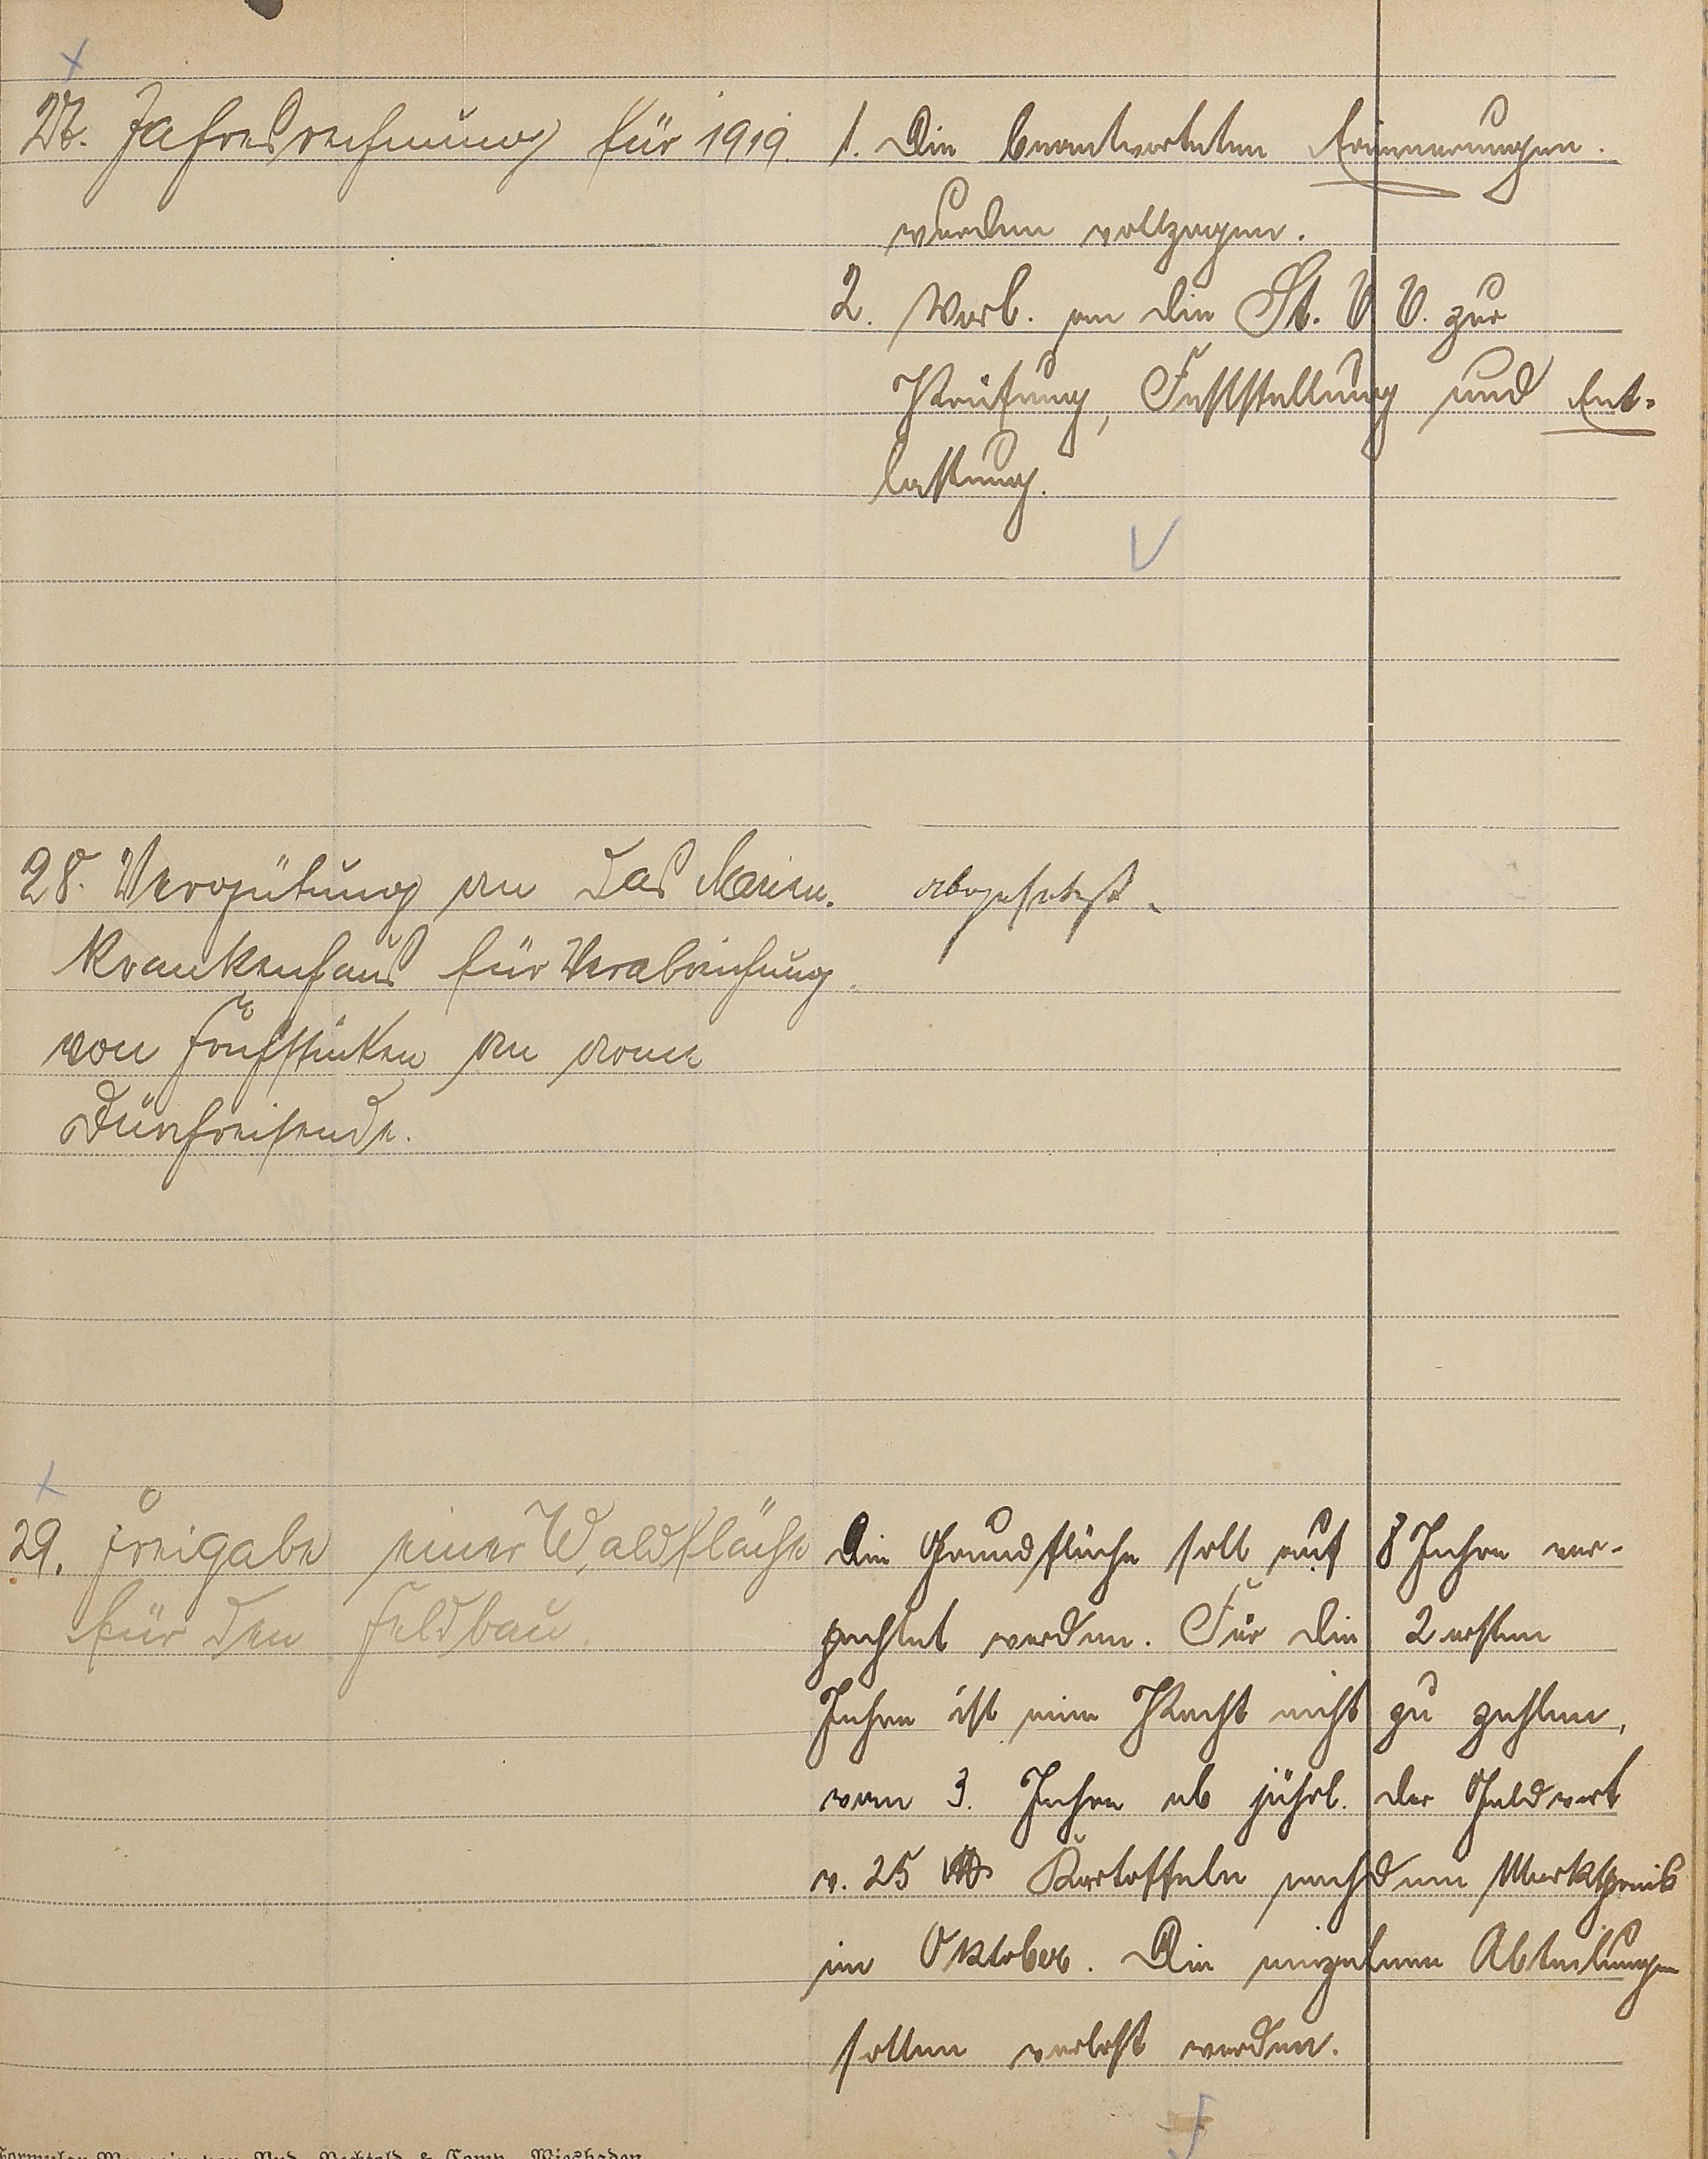 27. Jahresrechnung für 1919.
1. Die beantworteten Erinnerungen
wurden vollzogen.
2. Vorl. an die St. V. V. zur
Prüfung, Feststellung und Ent-
lastung.
28. Vergütung an das Marien-
krankenhaus für Verabreichung
von Frühstücken an arme
Durchreisende.
abgelehnt.
29. Freigabe einer Waldfläche
für den Feldbau.
Die Grundfläche soll auf 8 Jahre ver-
pachtet werden. Für die 2 ersten
Jahre ist eine Pacht nicht zu zahlen,
vom 3. Jahre ab jährl. der Geldwert
v. 25 Kartoffeln nach dem Marktpreis
im Oktober. Die einzelnen Abteilungen
sollen verlost werden.
Formular-Magazin von Rud. Bechtold & Comp. Wiesbaden